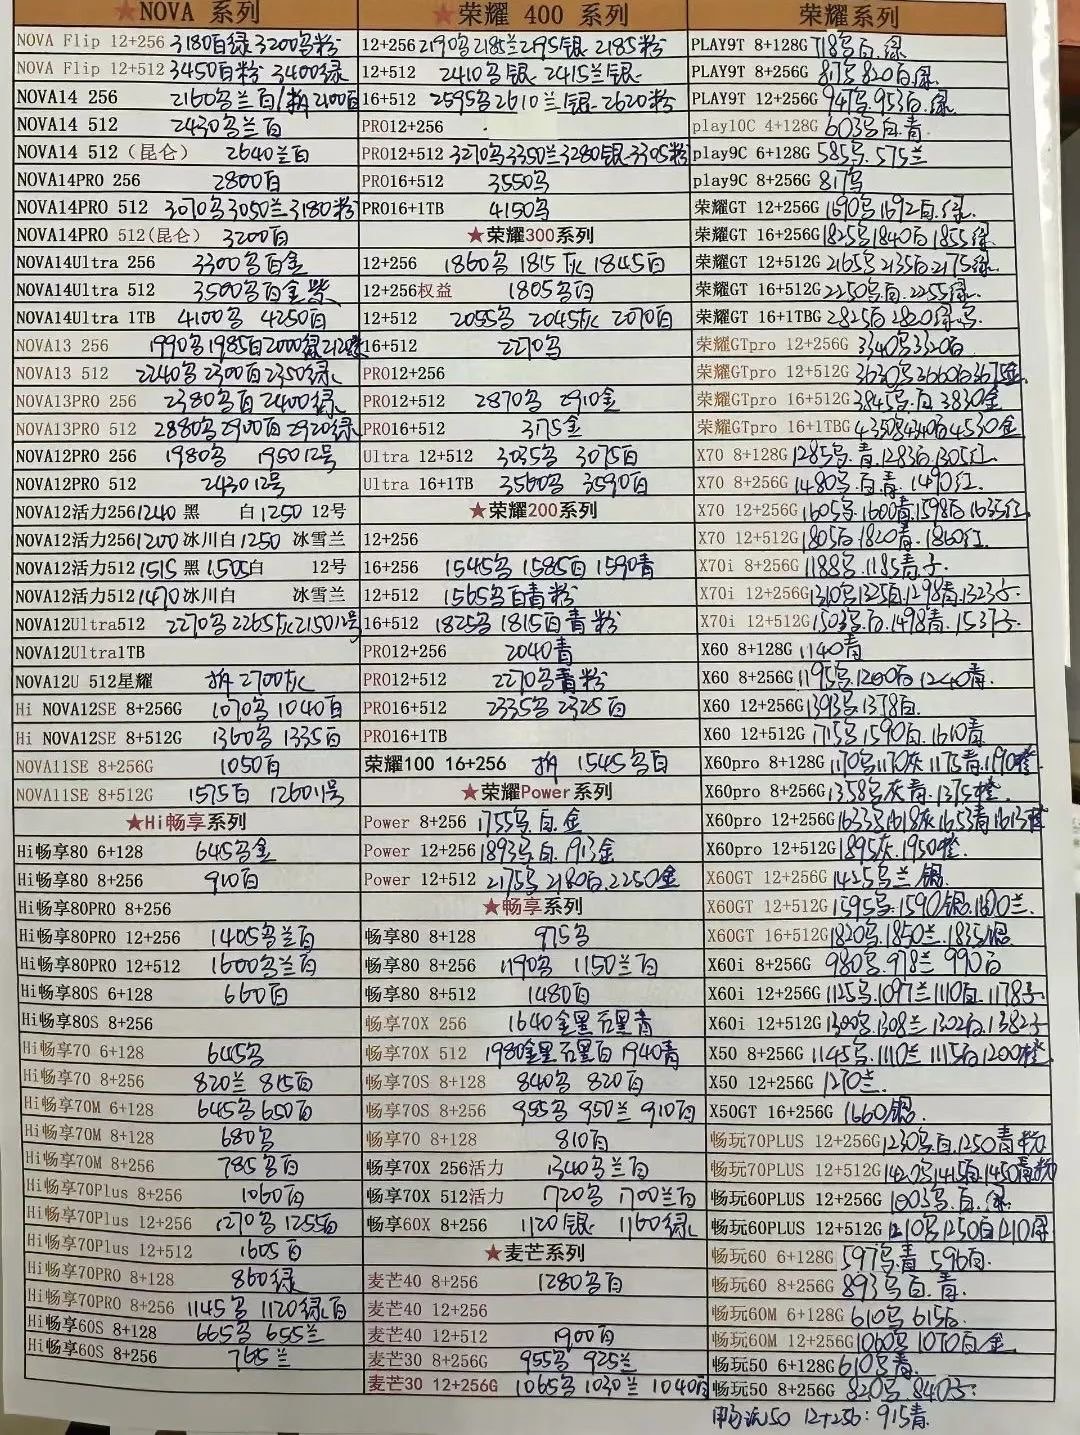 ★NOVA 系列
NOVA Flip 12+256 3180百绿 3200鸟粉
NOVA Flip 12+512 3450百粉 3400绿
NOVA14 256 2160鸟兰百/粉2100百
NOVA14 512 2430鸟兰百
NOVA14 512（昆仑） 2640兰百
NOVA14PRO 256 2800百
NOVA14PRO 512 3070鸟3050兰3180粉
NOVA14PRO 512(昆仑) 3200百
NOVA14Ultra 256 3300鸟百金
NOVA14Ultra 512 3500鸟百金紫
NOVA14Ultra 1TB 4100鸟 4250百
NOVA13 256 1990鸟1985百2000绿
NOVA13 512 2240鸟2300百2350绿
NOVA13PRO 256 2380鸟百2400绿
NOVA13PRO 512 2880鸟2900百2920绿
NOVA12PRO 256 1980鸟 1950 12号
NOVA12PRO 512 2430 12号
NOVA12活力256 1240 黑 白1250 12号
NOVA12活力256 1200 冰川白 1250 冰雪兰
NOVA12活力512 1515 黑 1505白 12号
NOVA12活力512 1470 冰川白 冰雪兰
NOVA12Ultra512 2270鸟2265灰2150 12号
NOVA12Ultra1TB
NOVA12U 512星耀 拆2700灰
Hi NOVA12SE 8+256G 1070鸟1040百
Hi NOVA12SE 8+512G 1360鸟1335百
NOVA11SE 8+256G 1050百
NOVA11SE 8+512G 1575百 1260 11号
★Hi畅享系列
Hi畅享80 6+128 645鸟金
Hi畅享80 8+256 910百
Hi畅享80PRO 8+256
Hi畅享80PRO 12+256 1405鸟兰百
Hi畅享80PRO 12+512 1600鸟兰百
Hi畅享80S 6+128 660百
Hi畅享80S 8+256
Hi畅享70 6+128 645鸟
Hi畅享70 8+256 820兰 815百
Hi畅享70M 6+128 645鸟650百
Hi畅享70M 8+128 680鸟
Hi畅享70M 8+256 785鸟百
Hi畅享70Plus 8+256 1060百
Hi畅享70Plus 12+256 1270鸟1255百
Hi畅享70Plus 12+512 1605百
Hi畅享70PRO 8+128 860绿
Hi畅享70PRO 8+256 1145鸟 1120绿百
Hi畅享60S 8+128 665鸟 655兰
Hi畅享60S 8+256 765兰
★荣耀 400 系列
12+256 2190鸟2185兰2195银 2185粉
12+512 2410鸟银 2415兰银
16+512 2595鸟2610兰银2620粉
PRO12+256
PRO12+512 3270鸟3350兰3280银3305粉
PRO16+512 3550鸟
PRO16+1TB 4150鸟
★荣耀300系列
12+256 1860鸟 1815灰1845百
12+256权益 1805鸟百
12+512 2055鸟 2045灰 2070百
16+512 2270鸟
PRO12+256
PRO12+512 2870鸟 2910金
PRO16+512 3175金
Ultra 12+512 3035鸟 3075百
Ultra 16+1TB 3560鸟 3590百
★荣耀200系列
12+256
16+256 1545鸟 1585百 1590青
12+512 1565鸟百青粉
16+512 1825鸟 1815百青粉
PRO12+256 2040青
PRO12+512 2270鸟青粉
PRO16+512 2335鸟2325百
PRO16+1TB
荣耀100 16+256 拆 1545鸟百
★荣耀Power系列
Power 8+256 1755鸟.百.金
Power 12+256 1893鸟百.1913金
Power 12+512 2175鸟2180百.2250金
★畅享系列
畅享80 8+128 975鸟
畅享80 8+256 1190鸟 1150兰百
畅享80 8+512 1480百
畅享70X 256 1640金黑百黑青
畅享70X 512 1980金黑百黑百1940青
畅享70S 8+128 840鸟 820百
畅享70S 8+256 955鸟 950兰910百
畅享70 8+128 810百
畅享70X 256活力 1340鸟兰百
畅享70X 512活力 1720鸟 1700兰百
畅享60X 8+256 1120银 1160绿
★麦芒系列
麦芒40 8+256 1280鸟百
麦芒40 12+256
麦芒40 12+512 1900百
麦芒30 8+256G 955鸟 925兰
麦芒30 12+256G 1065鸟1030兰 1040百
荣耀系列
PLAY9T 8+128G 718鸟百.绿
PLAY9T 8+256G 817鸟820百绿
PLAY9T 12+256G 947鸟.953百.绿
play10C 4+128G 603鸟百.青
play9C 6+128G 585鸟.575兰
play9C 8+256G 817鸟
荣耀GT 12+256G 1690鸟1692百.绿.
荣耀GT 16+256G 1825鸟1840百1855绿
荣耀GT 12+512G 2165鸟2135百2175绿
荣耀GT 16+512G 2250鸟百.2255绿
荣耀GT 16+1TBG 2825百2820绿鸟
荣耀GTpro 12+256G 3340鸟3320百
荣耀GTpro 12+512G 3630鸟3660百3675金
荣耀GTpro 16+512G 3845鸟.百3830金
荣耀GTpro 16+1TBG 4350鸟4340百4530金
X70 8+128G 1285鸟.青.1283百.1305红
X70 8+256G 1480鸟.百青.1490红.
X70 12+256G 1605鸟.1600青1598百1635红
X70 12+512G 1805百.1820青.1860红.
X70i 8+256G 1188鸟.1185青.子.
X70i 12+256G 1310鸟1325百1298青.1323子.
X70i 12+512G 1503鸟.百.1498青.1537子.
X60 8+128G 1140青
X60 8+256G 1195鸟.1200百1240青.
X60 12+256G 1393鸟1378百.
X60 12+512G 1715鸟1590百.1610青
X60pro 8+128G 1170鸟1170灰 1175青.1190橙
X60pro 8+256G 1358鸟灰青.1375橙.
X60pro 12+256G 1633鸟1618灰1653青1613橙
X60pro 12+512G 1895灰.1950橙.
X60GT 12+256G 1425鸟兰.银.
X60GT 12+512G 1595鸟.1590银.1600兰.
X60GT 16+512G 1820鸟.1850兰.1835银
X60i 8+256G 980鸟.978兰 990百
X60i 12+256G 1125鸟.1097兰1110百.1178子.
X60i 12+512G 1300鸟.1308兰1302百.1382子
X50 8+256G 1145鸟.1110兰1115百1200橙
X50 12+256G 1270兰.
X50GT 16+256G 1660银.
畅玩70PLUS 12+256G 1230鸟.百.1250青粉
畅玩70PLUS 12+512G 1420鸟1415百1450青粉
畅玩60PLUS 12+256G 1003鸟.百.绿.
畅玩60PLUS 12+512G 1210鸟1250百1210绿
畅玩60 6+128G 597鸟.青 596百.
畅玩60 8+256G 893鸟百.青.
畅玩60M 6+128G 610鸟615百.
畅玩60M 12+256G 1060鸟1070百金
畅玩50 6+128G 610鸟青.
畅玩50 8+256G 820鸟.840子.
畅玩50 12+256:915青.